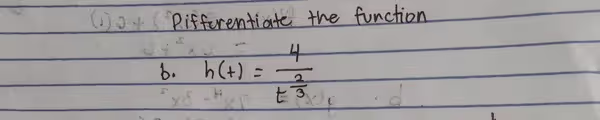 Differentiate the function
b. h(t) = 4 / t^(2/3)